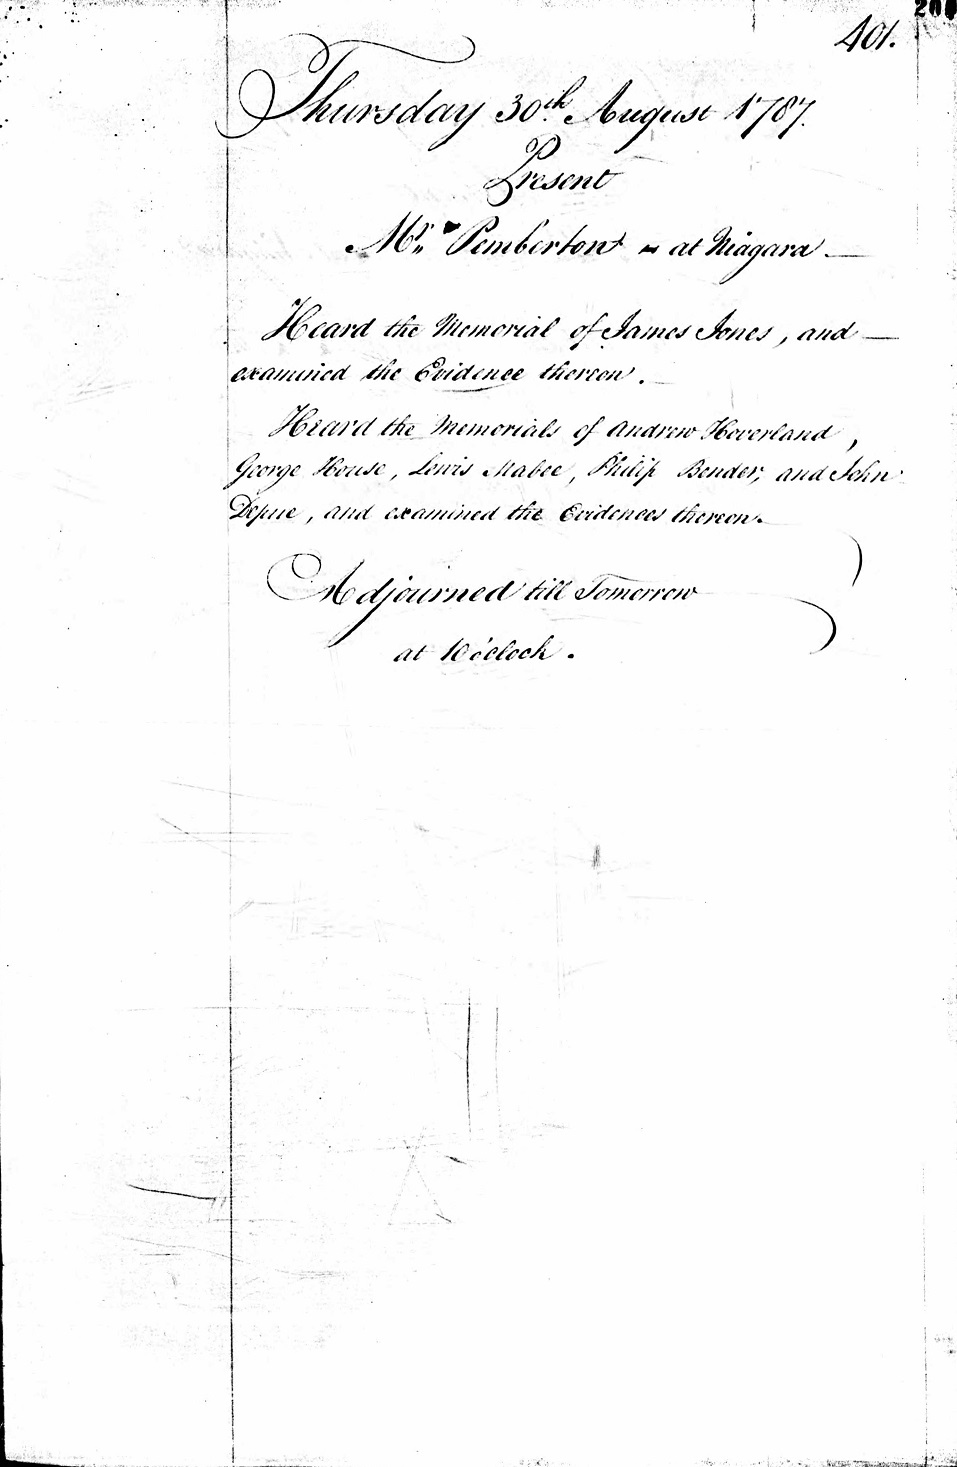 401.
Thursday 30th August 1787.
Present
Mr Pemberton - at Niagara
Heard the Memorial of James Jones, and
examined the Evidence thereon.
Heard the Memorials of Andrew Hoverland,
George House, Lewis Mabee, Philip Bender, and John
Depue, and examined the Evidences thereon.
Adjourned till Tomorrow
at 10 o'Clock.